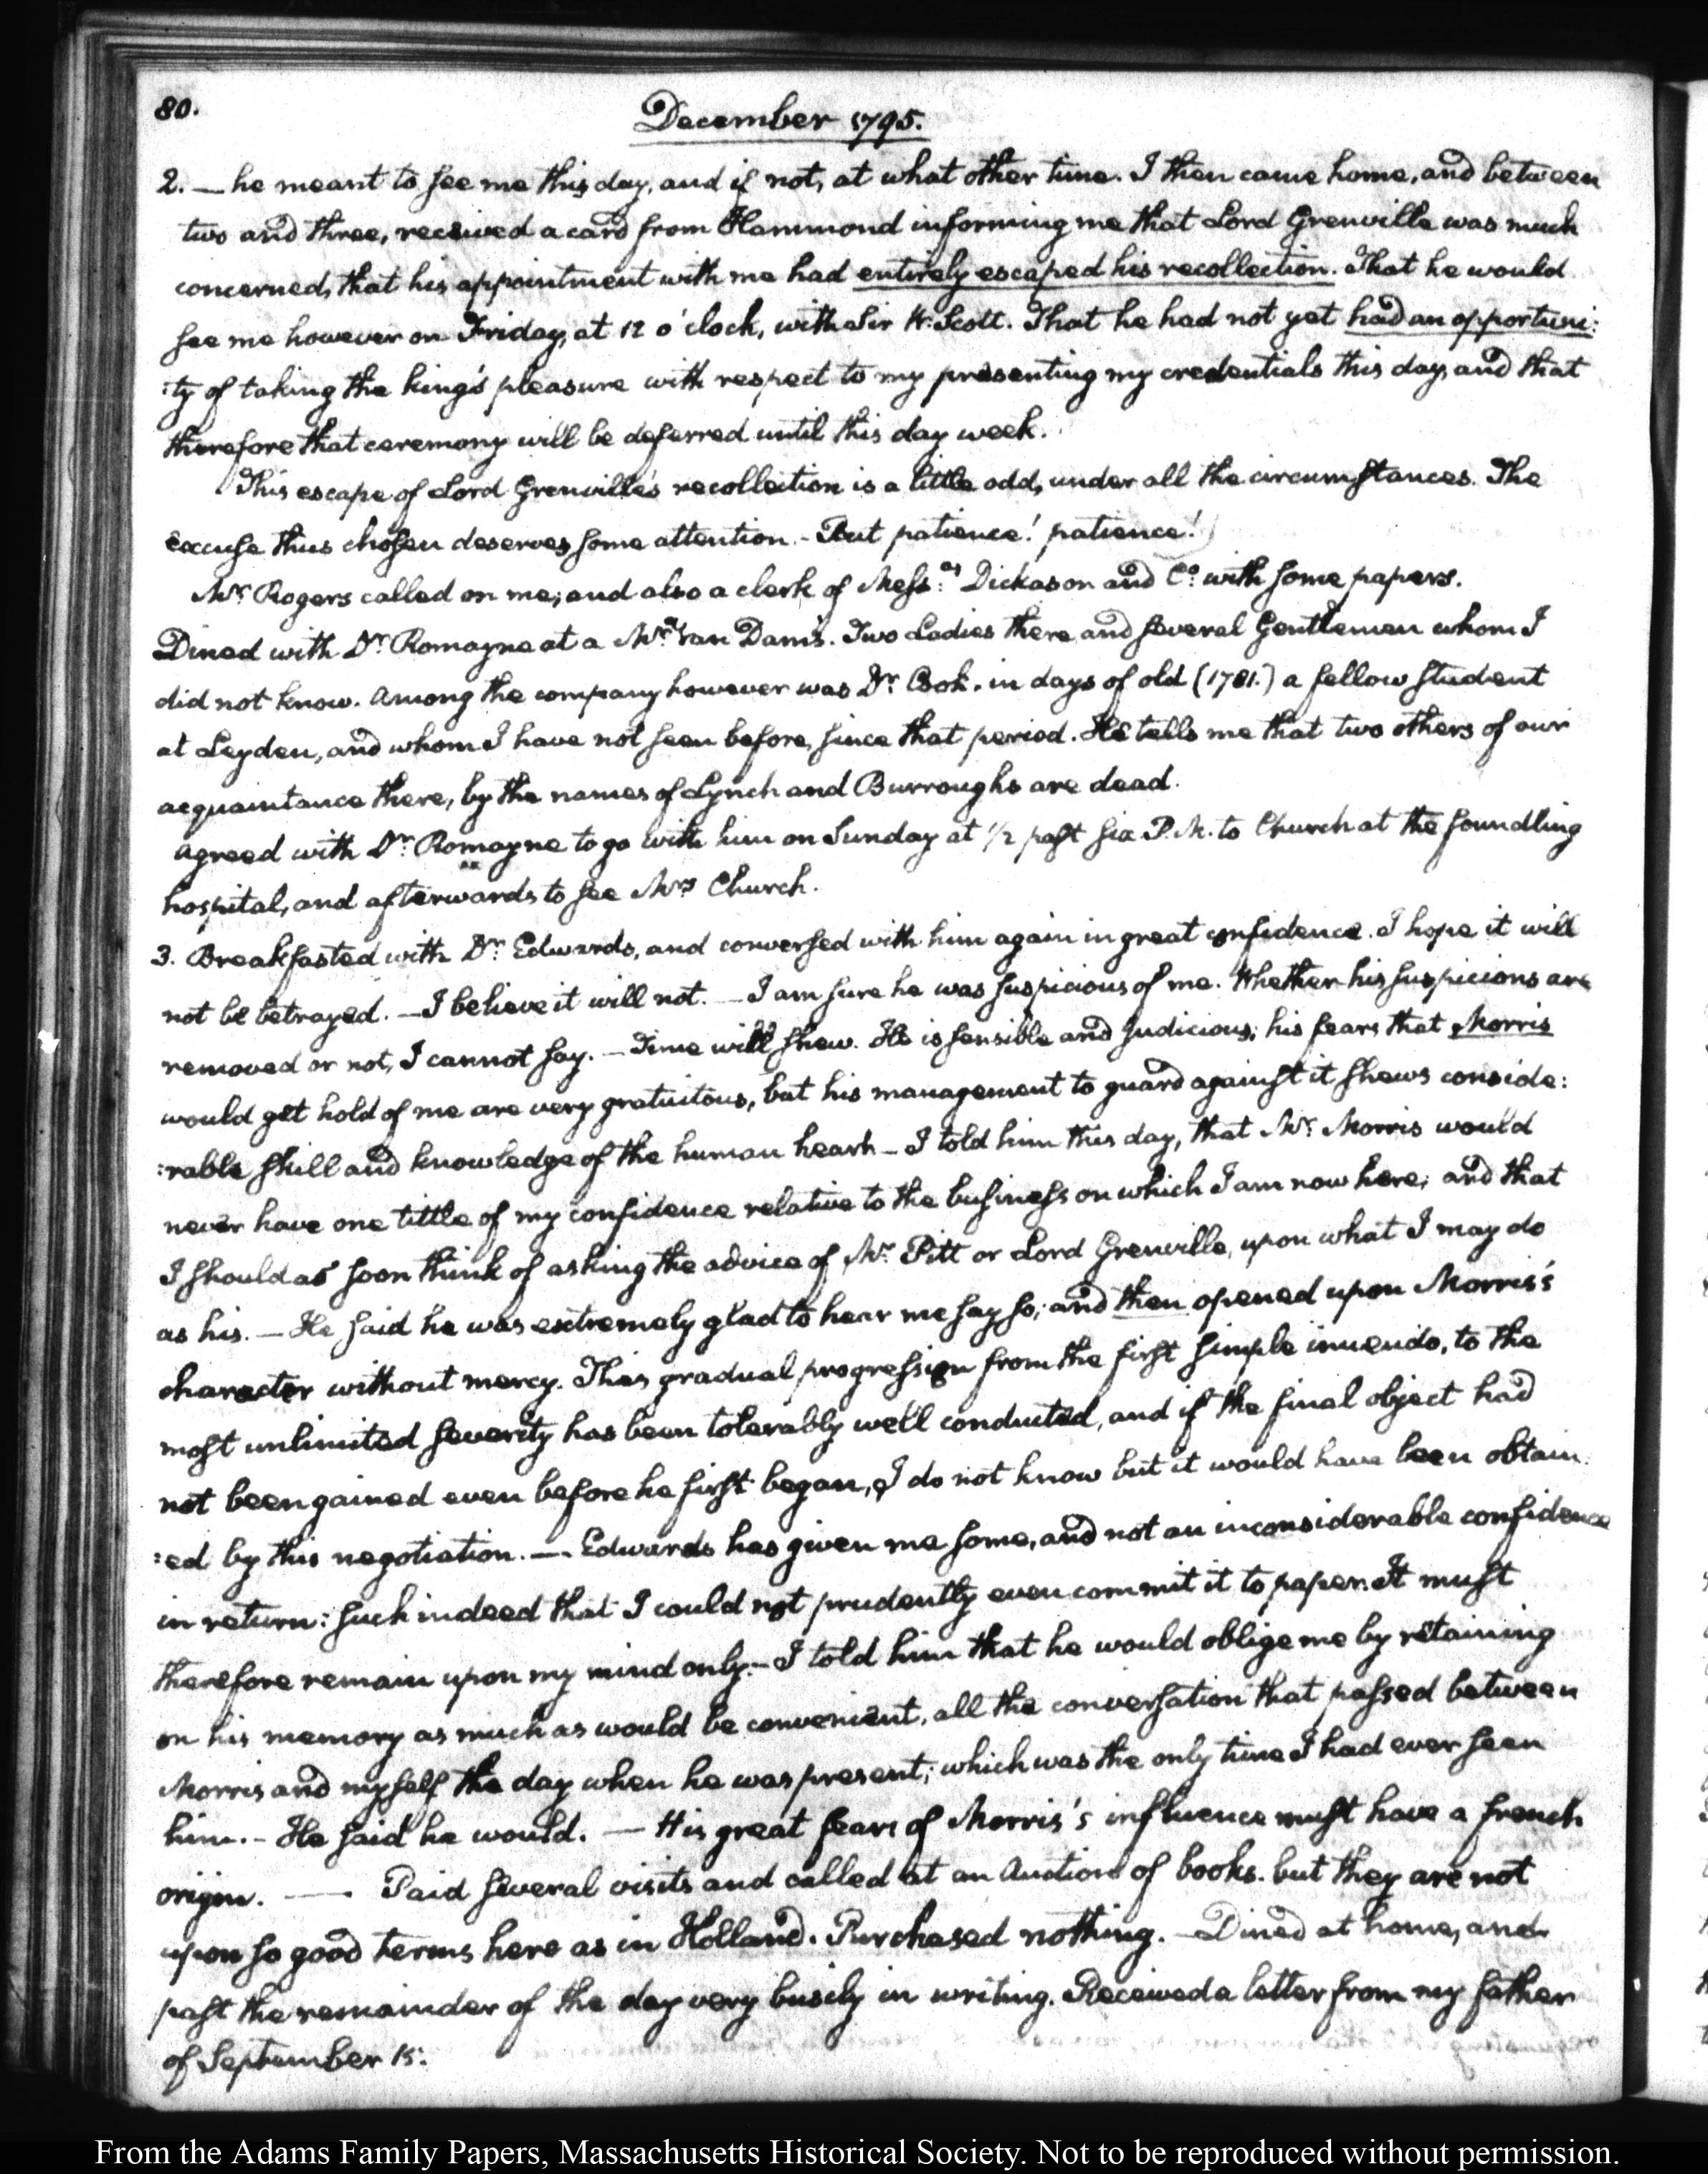 80.
December 1795.
2. — he meant to see me this day, and if not, at what other time. I then came home, and between
two and three, received a card from Hammond informing me that Lord Grenville was much
concerned, that his appointment with me had entirely escaped his recollection. That he would
see me however on Friday, at 12 o'clock, with Sir W. Scott. That he had not yet had an opportuni:
:ty of taking the king's pleasure with respect to my presenting my credentials this day, and that
therefore that ceremony will be deferred until this day week.
This escape of Lord Grenville's recollection is a little odd, under all the circumstances. The
excuse thus chosen deserves some attention. - But patience! patience!
Mr. Rogers called on me, and also a clerk of Mess:rs Dickason and Co. with some papers.
Dined with Dr. Romayne at a Mr. Van Dam's. Two Ladies there and several Gentlemen whom I
did not know. Among the company however was Dr. Cook. in days of old (1781.) a fellow student
at Leyden, and whom I have not seen before, since that period. He tells me that two others of our
acquaintance there, by the names of Lynch and Burroughs are dead.
Agreed with Dr. Romayne to go with him on Sunday at 1/2 past six P.M. to Church at the foundling
hospital, and afterwards to see Mrs Church.
3. Breakfasted with Dr. Edwards, and conversed with him again in great confidence. I hope it will
not be betrayed. — I believe it will not. — I am sure he was suspicious of me. Whether his suspicions are
removed or not, I cannot say. — Time will shew. He is sensible and judicious; his fears that Morris
would get hold of me are very gratuitous, but his management to guard against it shews conside:
:rable skill and knowledge of the human heart — I told him this day, that Mr. Morris would
never have one tittle of my confidence relative to the business on which I am now here; and that
I should as soon think of asking the advice of Mr. Pitt or Lord Grenville, upon what I may do
as his. — He said he was extremely glad to hear me say so; and then opened upon Morris's
character without mercy. This gradual progression from the first simple inuendo, to the
most unlimited severity has been tolerably well conducted, and if the final object had
not been gained even before he first began, I do not know but it would have been obtain:
:ed by this negotiation. — Edwards has given me some, and not an inconsiderable confidence
in return: such indeed that I could not prudently even commit it to paper. It must
therefore remain upon my mind only. — I told him that he would oblige me by retaining
on his memory as much as would be convenient, all the conversation that passed between
Morris and myself the day when he was present; which was the only time I had ever seen
him. - He said he would. — His great fears of Morris's influence must have a french
origin. — Paid several visits and called at an Auction of books. but they are not
upon so good terms here as in Holland. Purchased nothing. — Dined at home, and
past the remainder of the day very busily in writing. Received a letter from my father
of September 15:
From the Adams Family Papers, Massachusetts Historical Society. Not to be reproduced without permission.